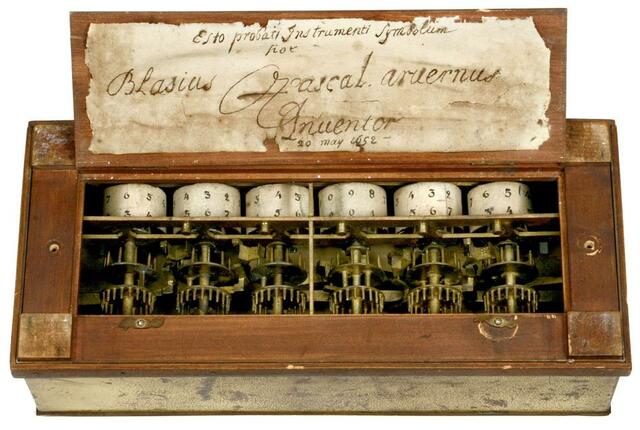 Esto probati Instrumenti Symbolum
hoc
Blasius Pascal. aruernus
Inuentor
20 may 1652
4 3 2 0 9 8 4 3 2
5 6 7 5 6 7